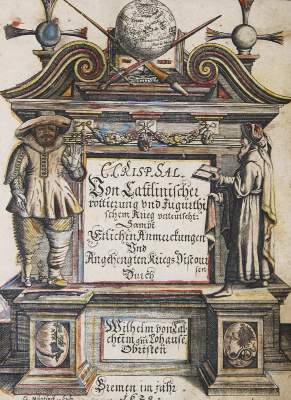 C. CRISP. SAL.
Von Catilinischer
rottirung vnd Jugurthi
schem Krieg verteutscht
Sampt
Etlichen Anmerckungen
Vnd
Angehengten Kriegs Discour
sen
Durch
Wilhelm von Cal
cheim gnt Lohausz
Obristen
Bremen im jahr